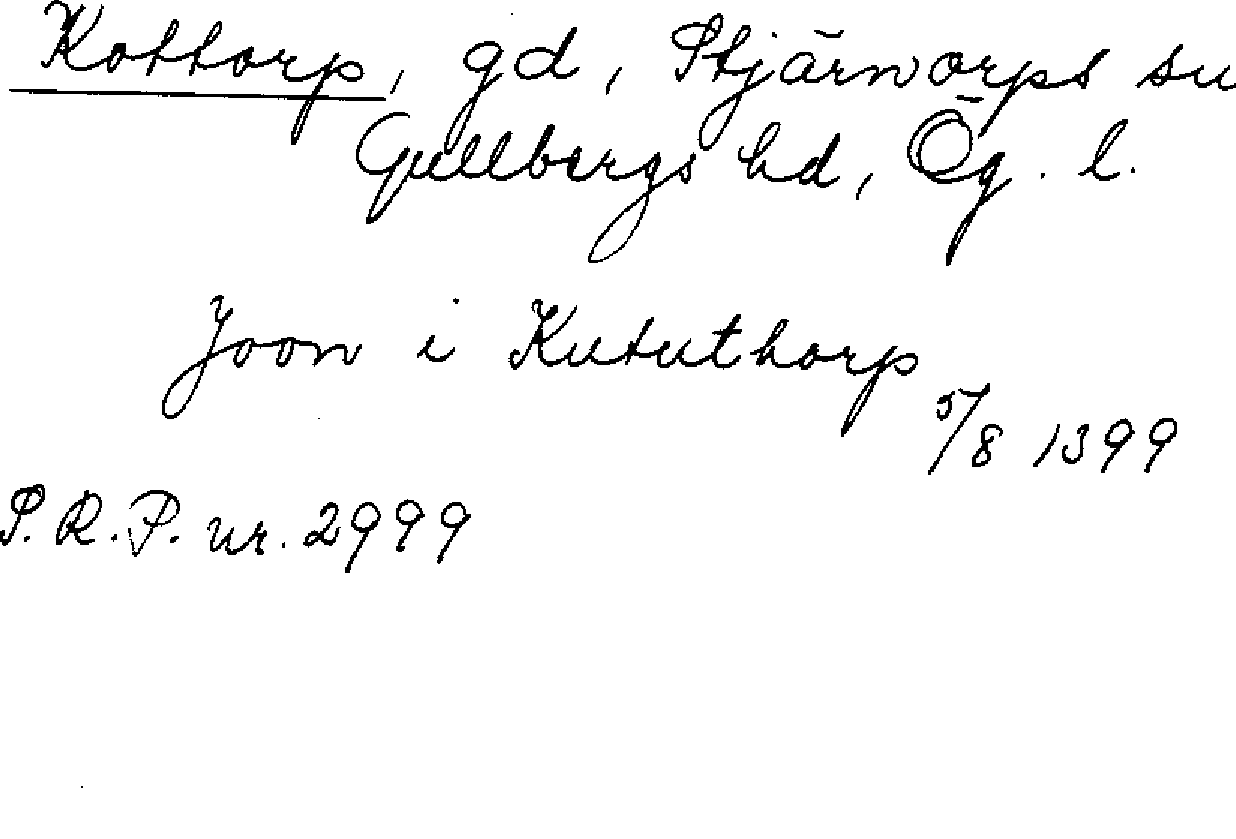 Kottorp, gd, Stjärnorps sn
Gullbergs hd, Ög. l.
Joon i Kututhorp
5/8 1399
S.R.P. nr. 2999